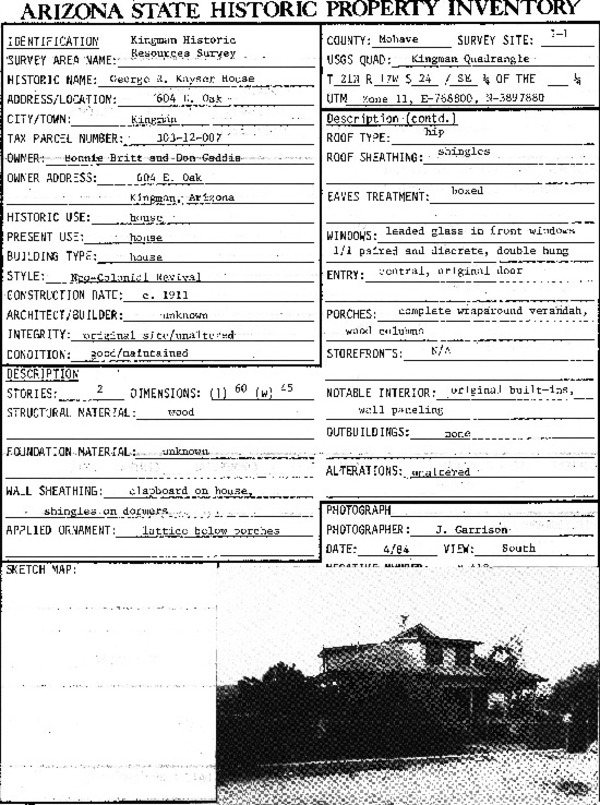 ARIZONA STATE HISTORIC PROPERTY INVENTORY
IDENTIFICATION Kingman Historic
SURVEY AREA NAME: Resources Survey
HISTORIC NAME: George R. Kayser House
ADDRESS/LOCATION: 604 E. Oak
CITY/TOWN: Kingman
TAX PARCEL NUMBER: 303-12-007
OWNER: Bonnie Britt and Don Gaddis
OWNER ADDRESS: 604 E. Oak
Kingman, Arizona
HISTORIC USE: house
PRESENT USE: house
BUILDING TYPE: house
STYLE: Neo-Colonial Revival
CONSTRUCTION DATE: c. 1911
ARCHITECT/BUILDER: unknown
INTEGRITY: original site/unaltered
CONDITION: good/maintained
DESCRIPTION
STORIES: 2 DIMENSIONS: (l) 60 (w) 45
STRUCTURAL MATERIAL: wood
FOUNDATION MATERIAL: unknown
WALL SHEATHING: clapboard on house,
shingles on dormers
APPLIED ORNAMENT: lattice below porches
SKETCH MAP:
COUNTY: Mohave SURVEY SITE:
USGS QUAD: Kingman Quadrangle
T 21N R 17W S 24 / SE ¼ OF THE ¼
UTM Zone 11, E-768800, N-3897880
Description (contd.)
ROOF TYPE: hip
ROOF SHEATHING: shingles
EAVES TREATMENT: boxed
WINDOWS: leaded glass in front windows
1/1 paired and discrete, double hung
ENTRY: central, original door
PORCHES: complete wraparound verandah,
wood columns
STOREFRONTS: N/A
NOTABLE INTERIOR: original built-ins,
wall paneling
OUTBUILDINGS: none
ALTERATIONS: unaltered
PHOTOGRAPH
PHOTOGRAPHER: J. Garrison
DATE: 4/84 VIEW: South
NEGATIVE NUMBER: